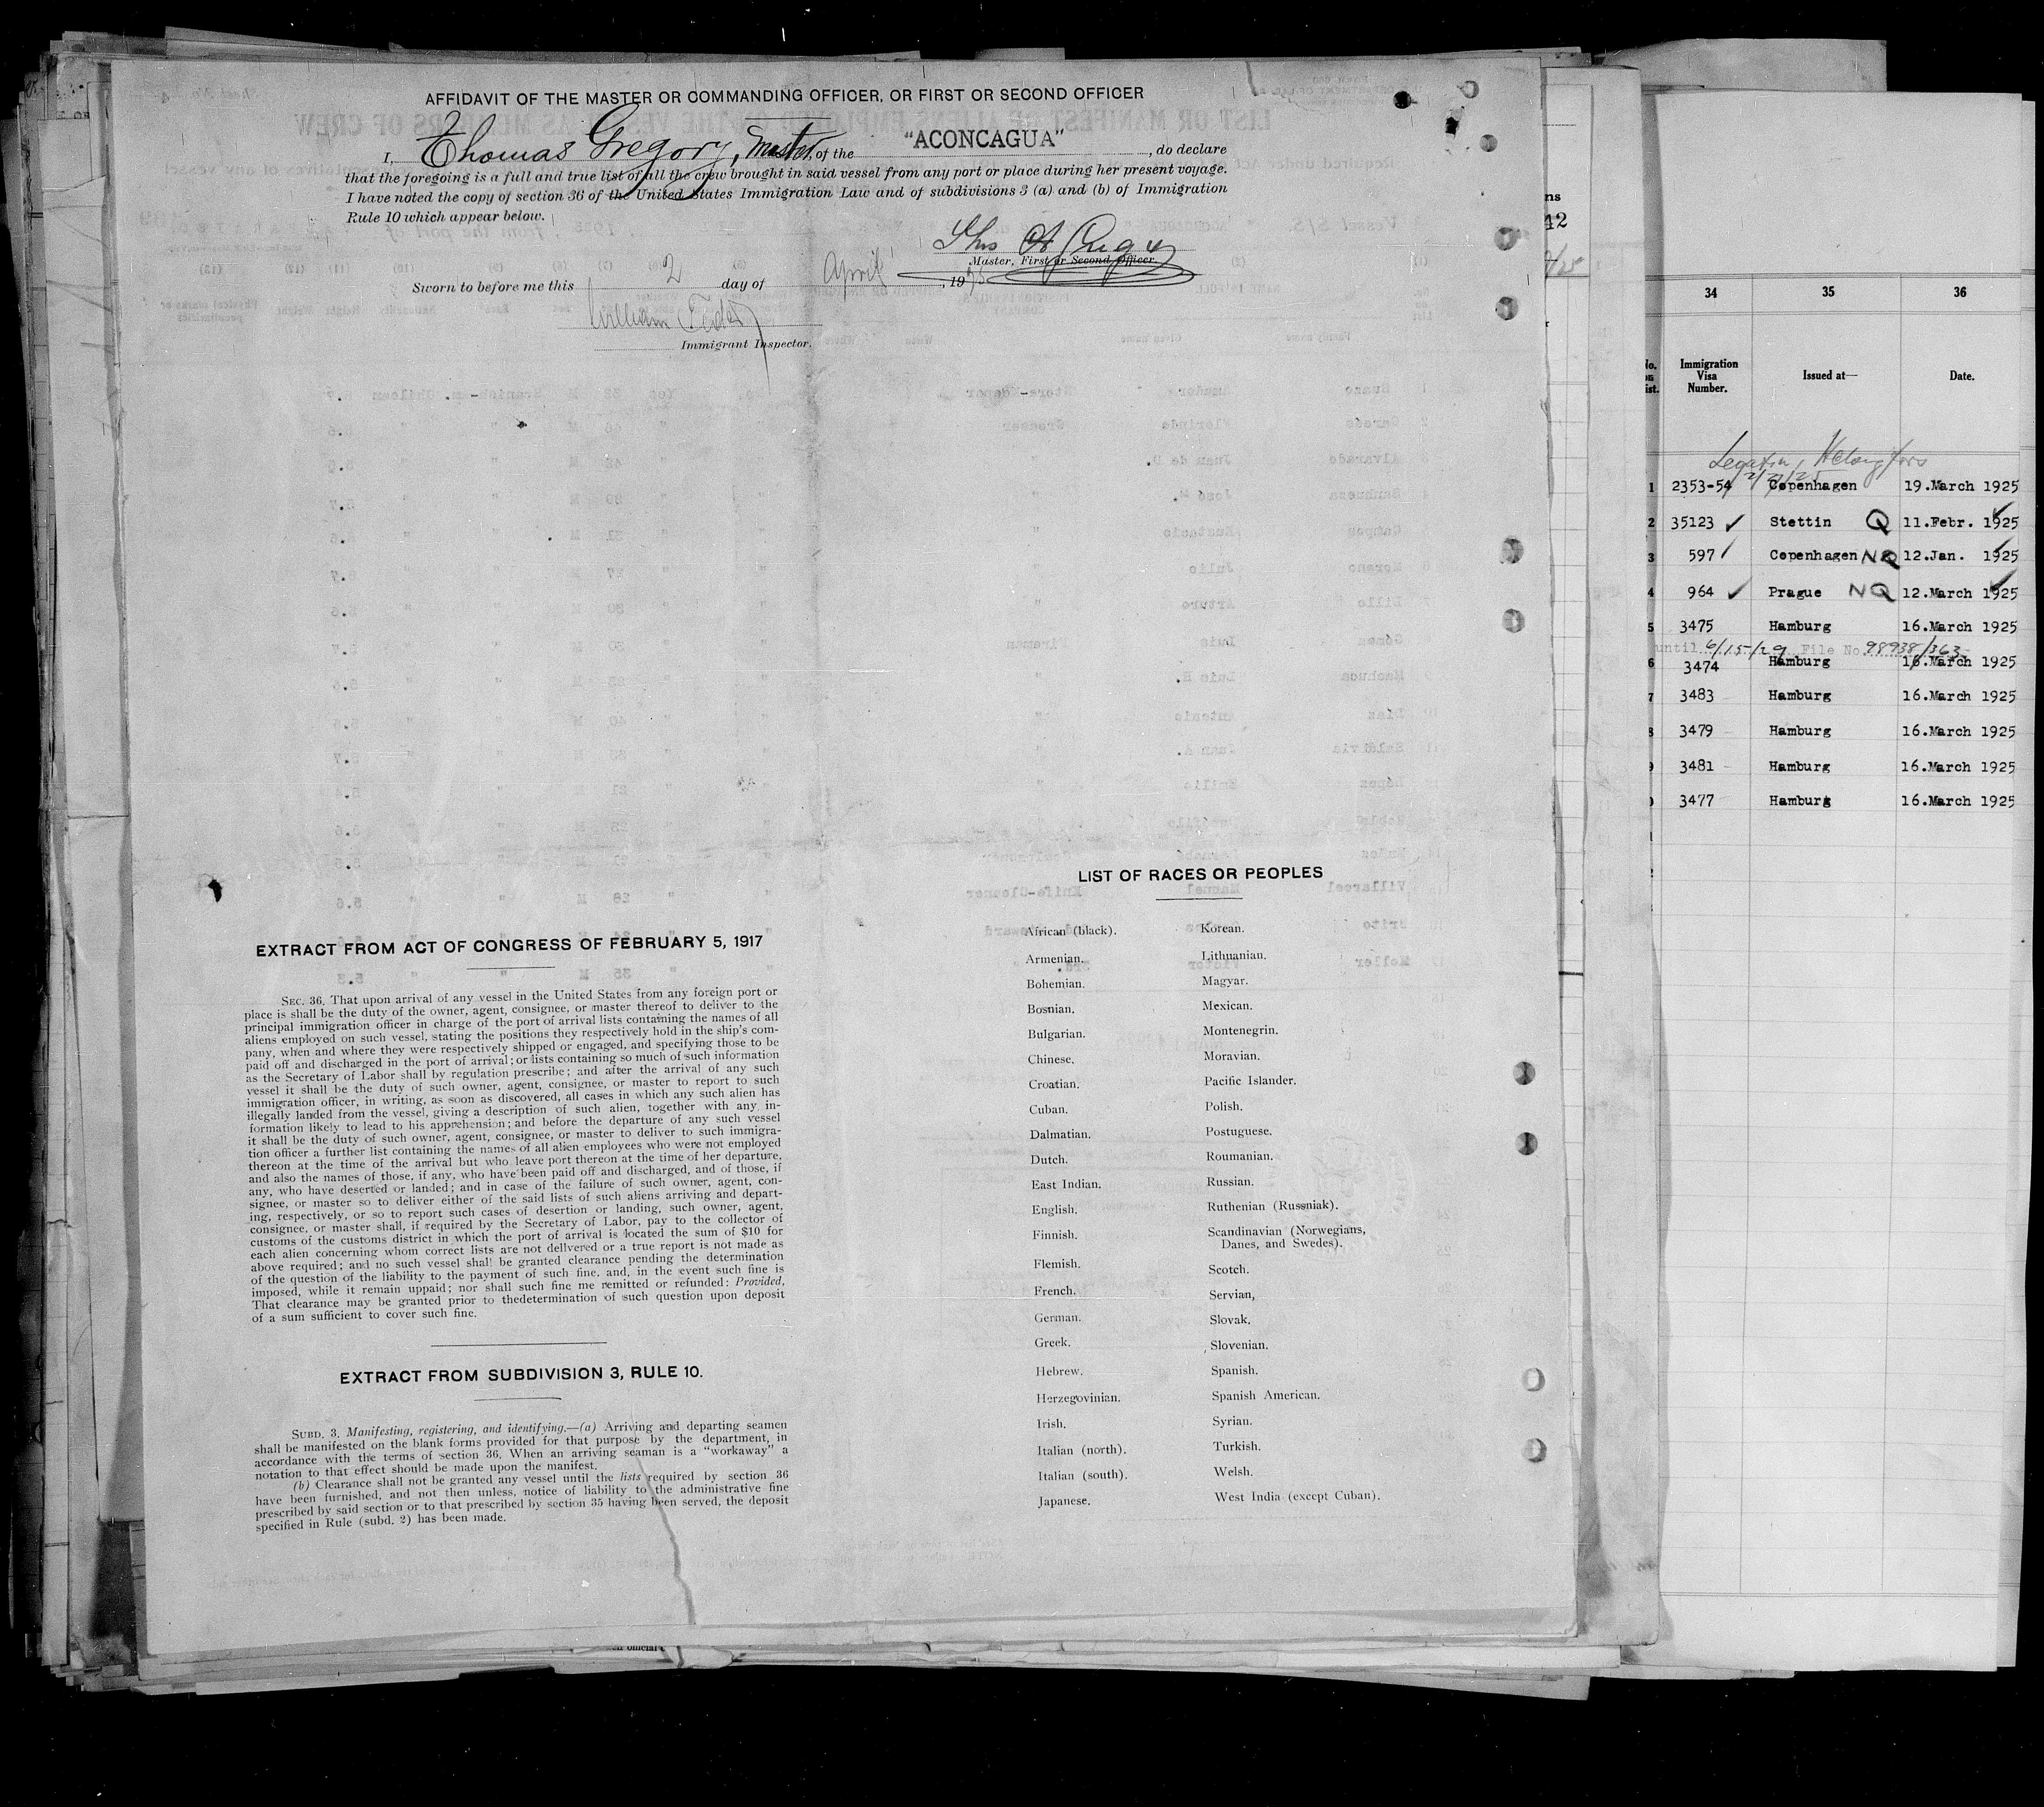 AFFIDAVIT OF THE MASTER OR COMMANDING OFFICER, OR FIRST OR SECOND OFFICER
I, Thomas Gregory, Master, of the "ACONCAGUA", do declare
that the foregoing is a full and true list of all the crew brought in said vessel from any port or place during her present voyage.
I have noted the copy of section 36 of the United States Immigration Law and of subdivisions 3 (a) and (b) of Immigration
Rule 10 which appear below.
Master, First or Second Officer.
Sworn to before me this 2 day of April, 1925
William
Immigrant Inspector.
EXTRACT FROM ACT OF CONGRESS OF FEBRUARY 5, 1917
SEC. 36. That upon arrival of any vessel in the United States from any foreign port or
place is shall be the duty of the owner, agent, consignee, or master thereof to deliver to the
principal immigration officer in charge of the port of arrival lists containing the names of all
aliens employed on such vessel, stating the positions they respectively hold in the ship's com-
pany, when and where they were respectively shipped or engaged, and specifying those to be
paid off and discharged in the port of arrival; or lists containing so much of such information
as the Secretary of Labor shall by regulation prescribe; and after the arrival of any such
vessel it shall be the duty of such owner, agent, consignee, or master to report to such
immigration officer, in writing, as soon as discovered, all cases in which any such alien has
illegally landed from the vessel, giving a description of such alien, together with any in-
formation likely to lead to his apprehension; and before the departure of any such vessel
it shall be the duty of such owner, agent, consignee, or master to deliver to such immigra-
tion officer a further list containing the names of all alien employees who were not employed
thereon at the time of the arrival but who leave port thereon at the time of her departure,
and also the names of those, if any, who have been paid off and discharged, and of those, if
any, who have deserted or landed; and in case of the failure of such owner, agent, con-
signee, or master so to deliver either of the said lists of such aliens arriving and depart-
ing, respectively, or so to report such cases of desertion or landing, such owner, agent,
consignee, or master shall, if required by the Secretary of Labor, pay to the collector of
customs of the customs district in which the port of arrival is located the sum of $10 for
each alien concerning whom correct lists are not delivered or a true report is not made as
above required; and no such vessel shall be granted clearance pending the determination
of the question of the liability to the payment of such fine, and, in the event such fine is
imposed, while it remain uppaid; nor shall such fine me remitted or refunded: Provided,
That clearance may be granted prior to thedetermination of such question upon deposit
of a sum sufficient to cover such fine.
EXTRACT FROM SUBDIVISION 3, RULE 10.
SUBD. 3. Manifesting, registering, and identifying.—(a) Arriving and departing seamen
shall be manifested on the blank forms provided for that purpose by the department, in
accordance with the terms of section 36. When an arriving seaman is a "workaway" a
notation to that effect should be made upon the manifest.
(b) Clearance shall not be granted any vessel until the lists required by section 36
have been furnished, and not then unless, notice of liability to the administrative fine
prescribed by said section or to that prescribed by section 35 having been served, the deposit
specified in Rule (subd. 2) has been made.
LIST OF RACES OR PEOPLES
African (black).
Armenian.
Bohemian.
Bosnian.
Bulgarian.
Chinese.
Croatian.
Cuban.
Dalmatian.
Dutch.
East Indian.
English.
Finnish.
Flemish.
French.
German.
Greek.
Hebrew.
Herzegovinian.
Irish.
Italian (north).
Italian (south).
Japanese.
Korean.
Lithuanian.
Magyar.
Mexican.
Montenegrin.
Moravian.
Pacific Islander.
Polish.
Postuguese.
Roumanian.
Russian.
Ruthenian (Russniak).
Scandinavian (Norwegians,
Danes, and Swedes).
Scotch.
Servian,
Slovak.
Slovenian.
Spanish.
Spanish American.
Syrian.
Turkish.
Welsh.
West India (except Cuban).
34 35 36
Immigration Visa Number. Issued at— Date.
1 2353-54 Copenhagen 19.March 1925
2 35123 Stettin Q 11.Febr. 1925
3 597 Copenhagen NQ 12.Jan. 1925
4 964 Prague NQ 12.March 1925
5 3475 Hamburg 16.March 1925
until 6/15/29 File No. 98938/363
6 3474 Hamburg 16.March 1925
7 3483 Hamburg 16.March 1925
8 3479 Hamburg 16.March 1925
3481 Hamburg 16.March 1925
3477 Hamburg 16.March 1925